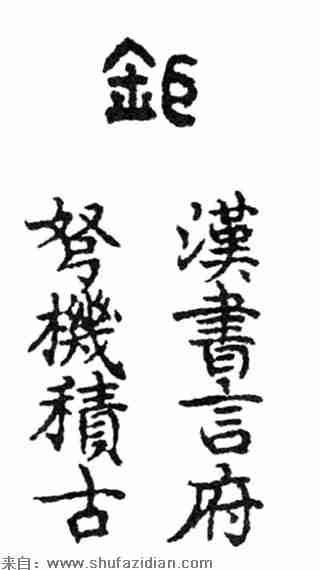 漢書言府
弩機積古
来自：www.shufazidian.com